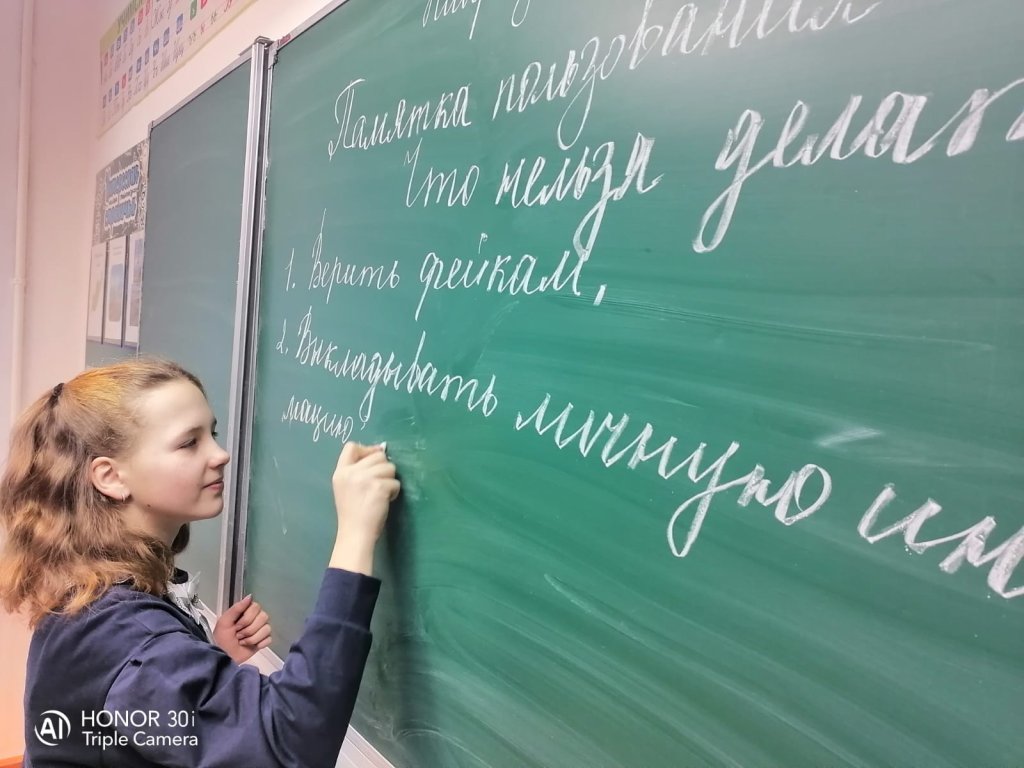 Памятка пользования
Что нельзя делать
1. Верить фейкам,
2. Выкладывать личную ин
мацию
HONOR 30i
AI Triple Camera